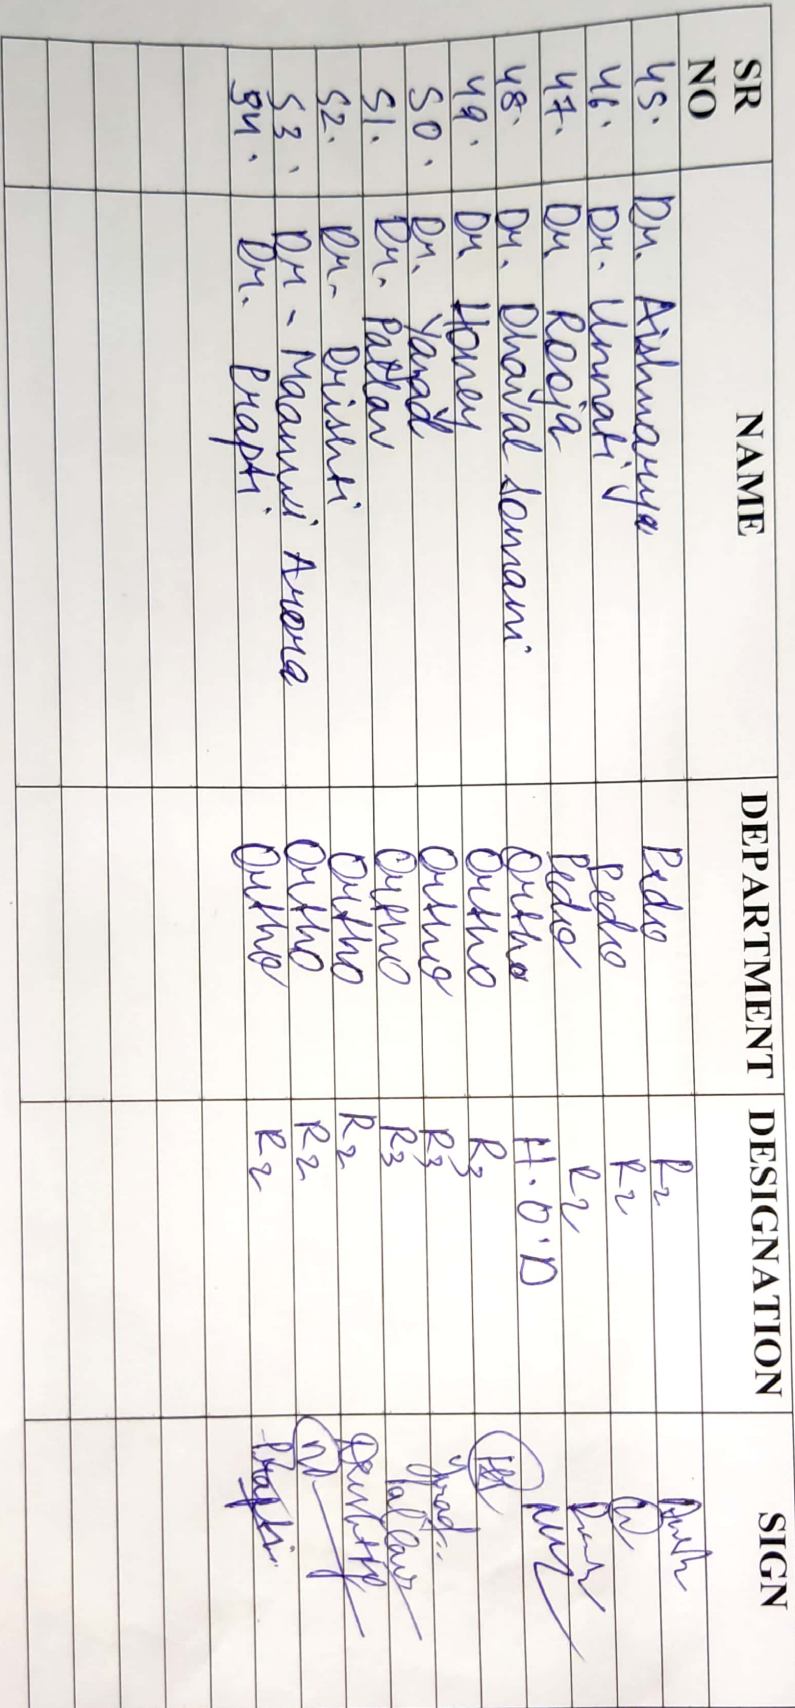 SR NO NAME DEPARTMENT DESIGNATION SIGN
45. Dr. Aishwarya Pedo R2
46. Dr. Unnati Pedo R2
47. Dr Rooja Pedo R2
48. Dr. Dhaval Somani Ortho H.O.D
49. Dr Honey Ortho R3
50. Dr. Yarad Ortho R3
51. Dr. Pallav Ortho R3
52. Dr. Drishti Ortho R2 Drishti
53. Dr - Maanvi Arora Ortho R2
54. Dr. Prapti Ortho R2 Prapti